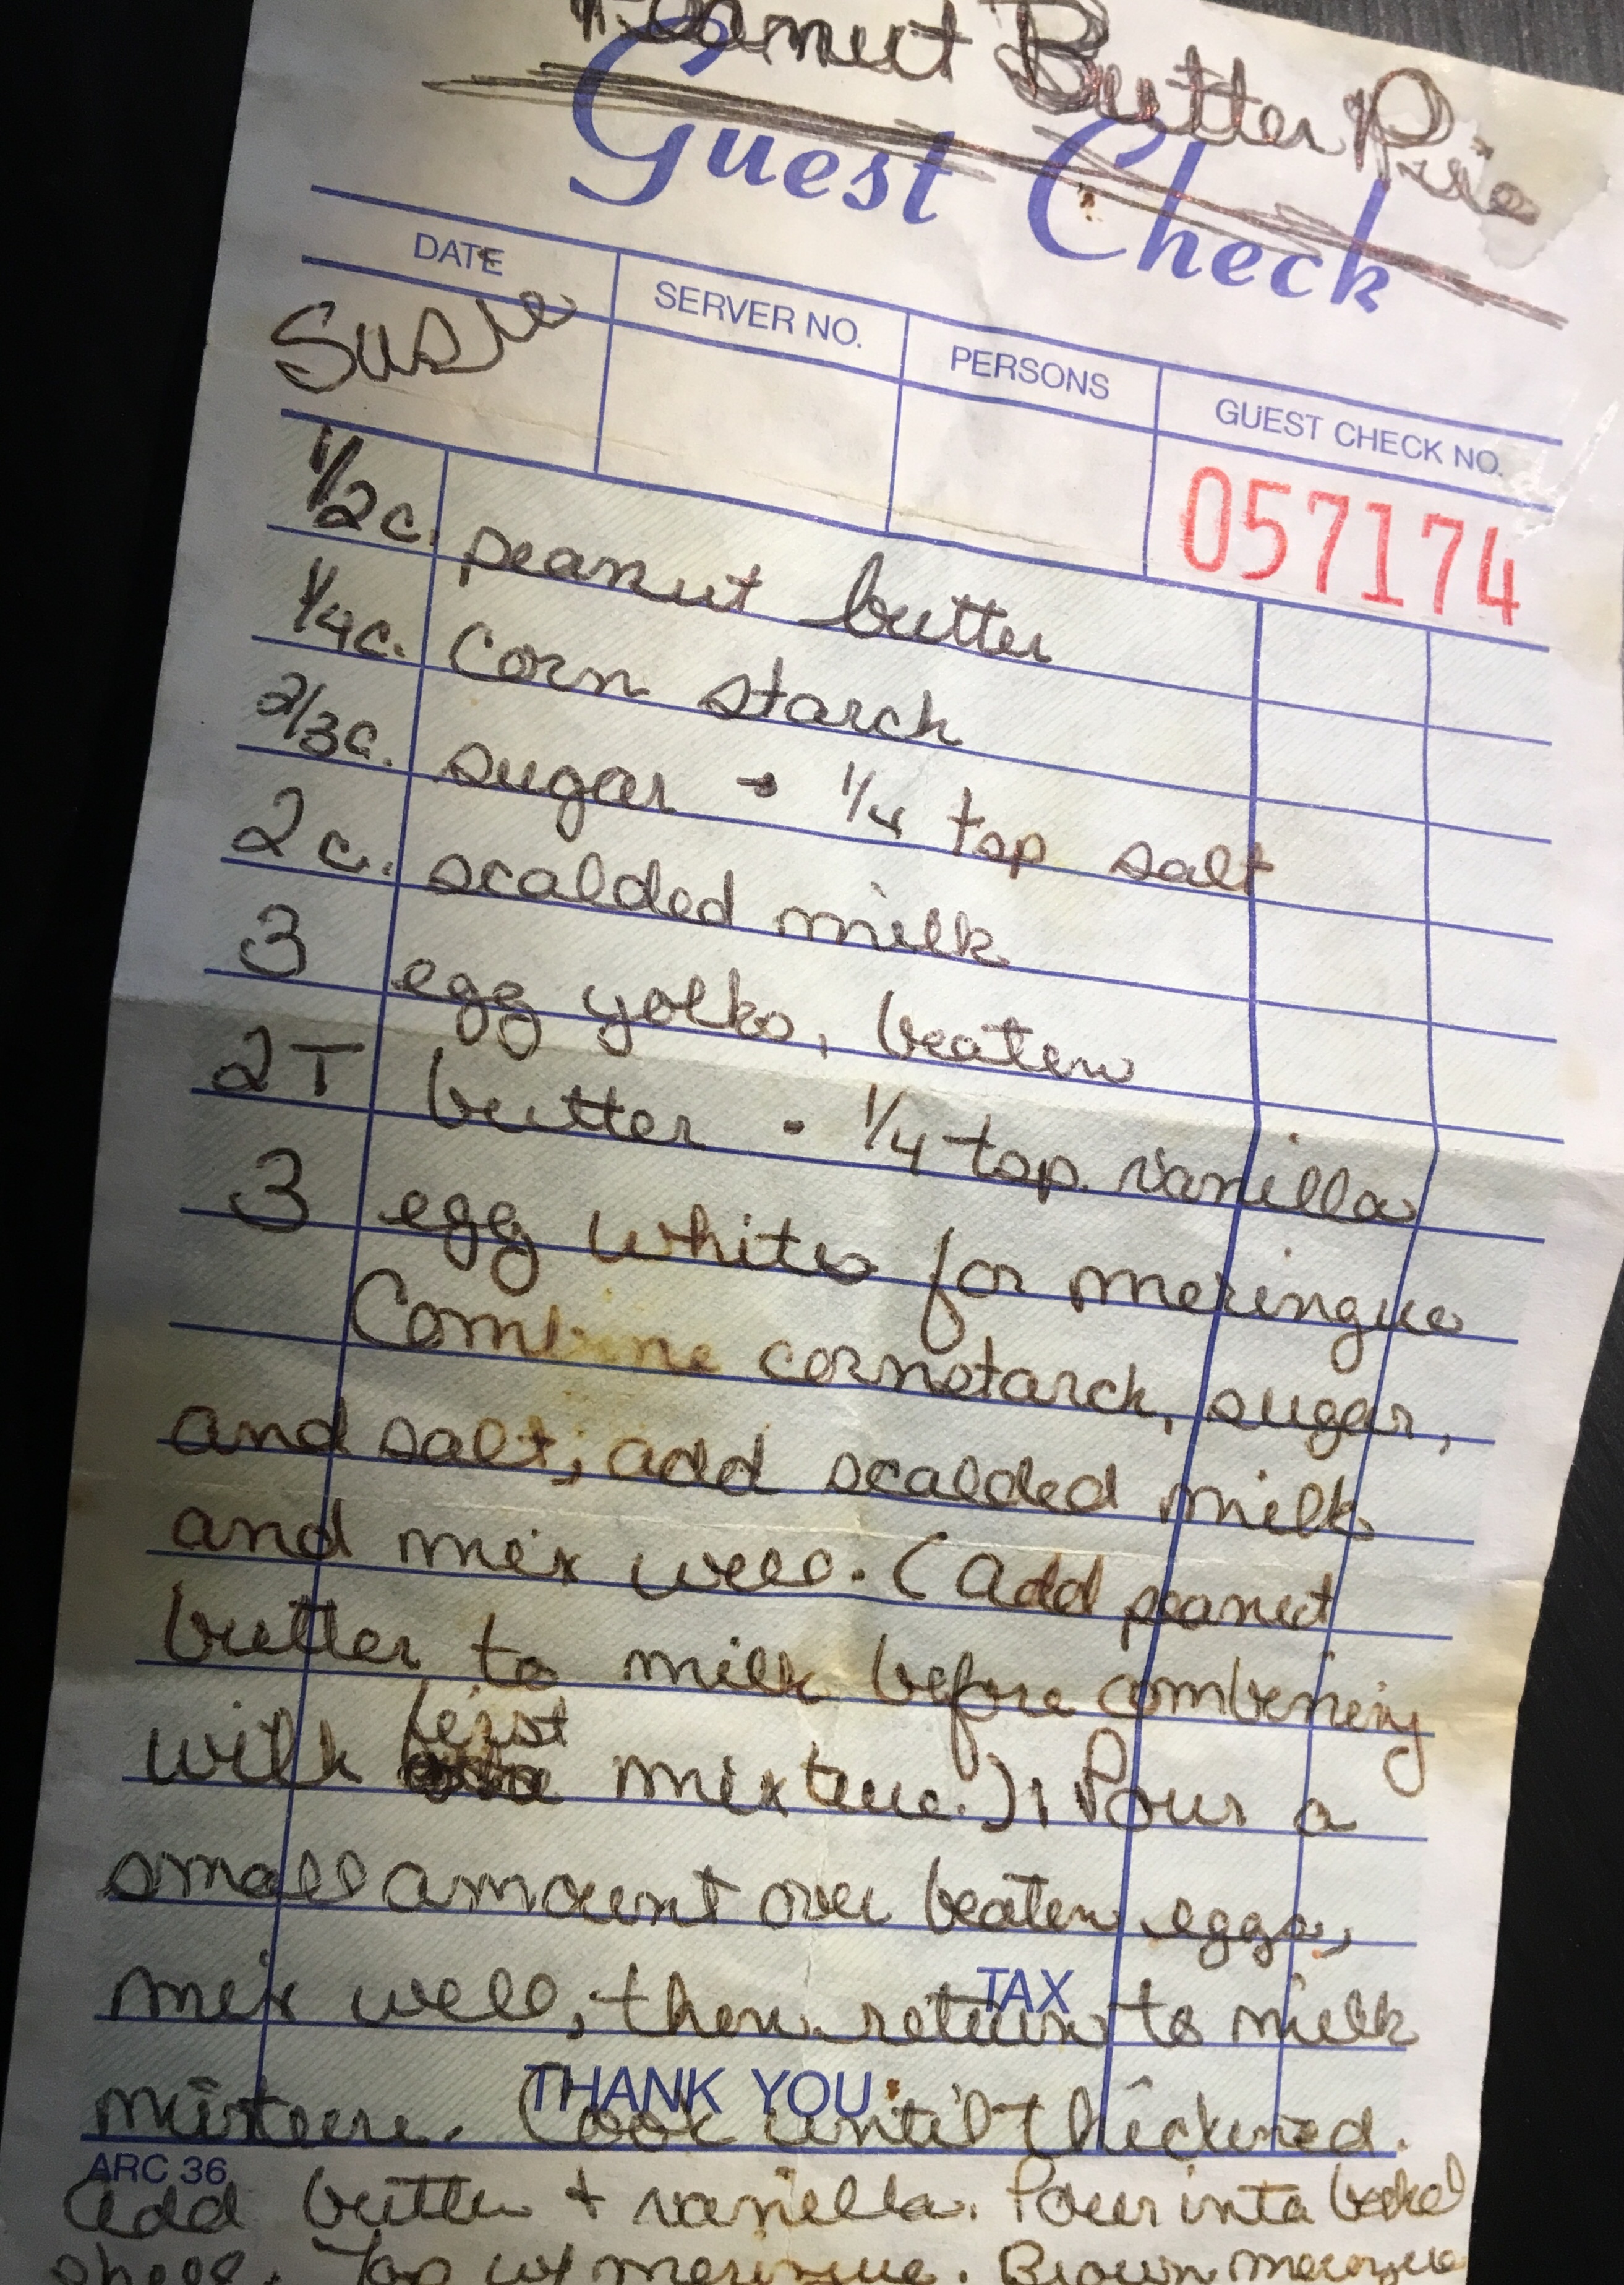 Peanut Butter Pie
Guest Check
DATE SERVER NO. PERSONS GUEST CHECK NO.
Susie 057174
1/2 c. peanut butter
1/4 c. corn starch
2/3 c. sugar - 1/4 tsp salt
2 c. scalded milk
3 egg yolks, beaten
2 T butter - 1/4 tsp. vanilla
3 egg whites for meringue
Combine cornstarch, sugar,
and salt; add scalded milk
and mix well. (Add peanut
butter to milk before combining
with first mixture.) Pour a
small amount over beaten eggs,
TAX
mix well, then return to milk
THANK YOU
mixture. Cook until thickened.
ARC 36
Add butter + vanilla. Pour into baked
shell. Top w/ meringue. Brown meringue